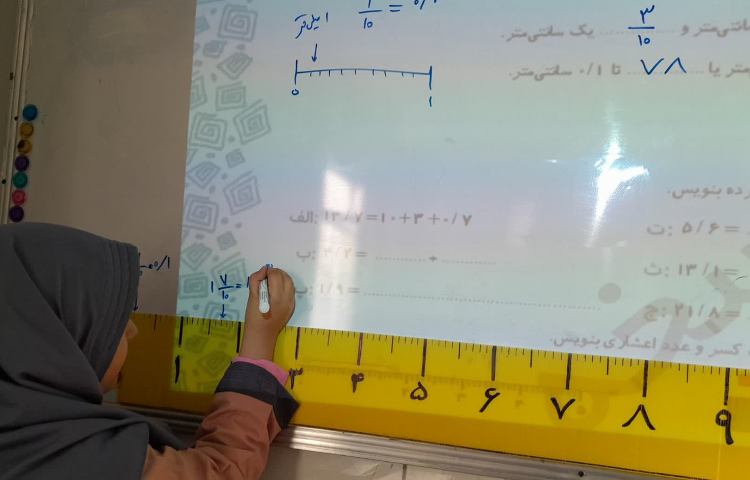 ۱/۱۰ = ۰/۱
۱ میلی‌متر
۰ ۱
یک سانتی‌متر و ۳/۱۰ سانتی‌متر
متر یا ۷۸ تا ۰/۱ سانتی‌متر.
ده بنویس.
الف: ۱۳/۷=۱۰+۳+۰/۷
ت: ۵/۶ =
ب: ۳/۲ = .......... + ..........
ث: ۱۳/۱ =
پ: ۱/۹ = ..........
ج: ۲۱/۸ =
کسر و عدد اعشاری بنویس.
۰/۱
۱ ۷/۱۰ = ۱
۱ ۳ ۴ ۵ ۶ ۷ ۸ ۹